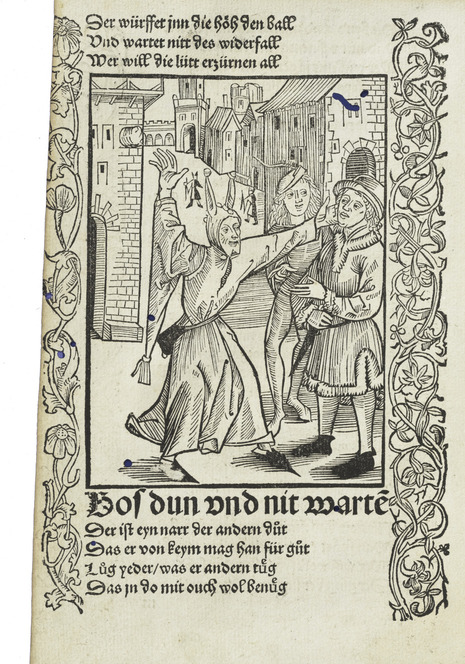 Der würffet jnn die höh den ball
Vnd wartet nitt des widerfall
Wer will die lütt erzürnen all
Bos dun vnd nit wartē
Der ist eyn narr der andern důt
Das er von keym mag han für gůt
Lůg yeder / was er andern tüg
Das jn do mit ouch wol benüg